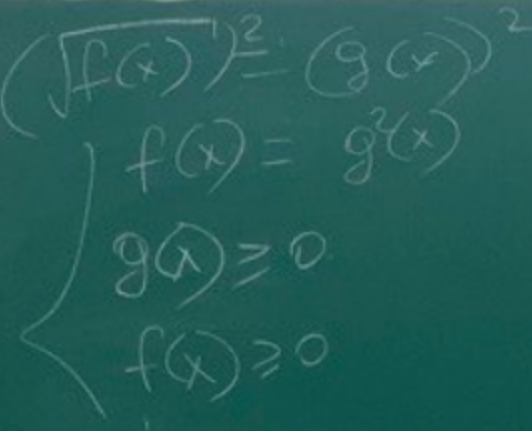 (√f(x))² = (g(x))²
f(x) = g²(x)
g(x) ≥ 0
f(x) ≥ 0